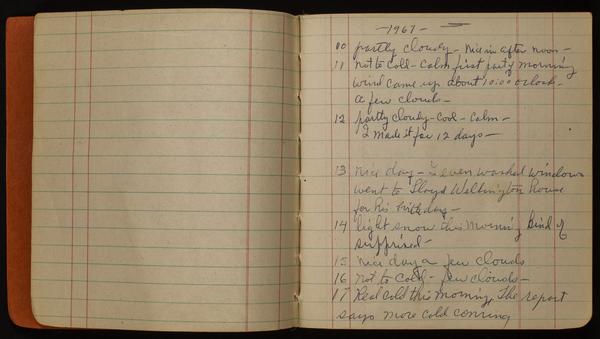 -1967-
10 partly cloudy - nice in after noon -
11 not to cold - calm first part of morning
wind came up about 10:00 oclock -
a few clouds -
12 partly cloudy - cool - calm -
I made it for 12 days -
13 nice day - I even washed windows
went to Lloyd Wellington House
for his birthday -
14 light snow this morning kind of
surprised -
15 nice day a few clouds
16 not to cold - few clouds -
17 Real cold this morning, The report
says more cold comring